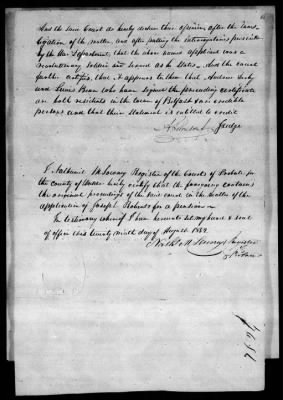 And the said Court do hereby declare their opinion, after the inves-
tigation of the matter, and after putting the interrogatories prescribed
by the War Department, that the above named applicant was a
revolutionary soldier and served as he states. And the court
further certifies, that it appears to them that Andrew
and Lewis Bean who have signed the preceeding certificate
are both residents in the town of Belfast are credible
persons and that their statement is entitled to credit
Judge
I Nathaniel M Lowney Register of the Courts of Probate for
the county of Waldo hereby certify that the foregoing contains
the original proceedings of the said court in the matter of the
application of Joseph Roberts for a pension
In testimony whereof I have hereunto set my hand & seal
of office this twenty ninth day of August 1832.
Nathl M Lowney Register
of Probate